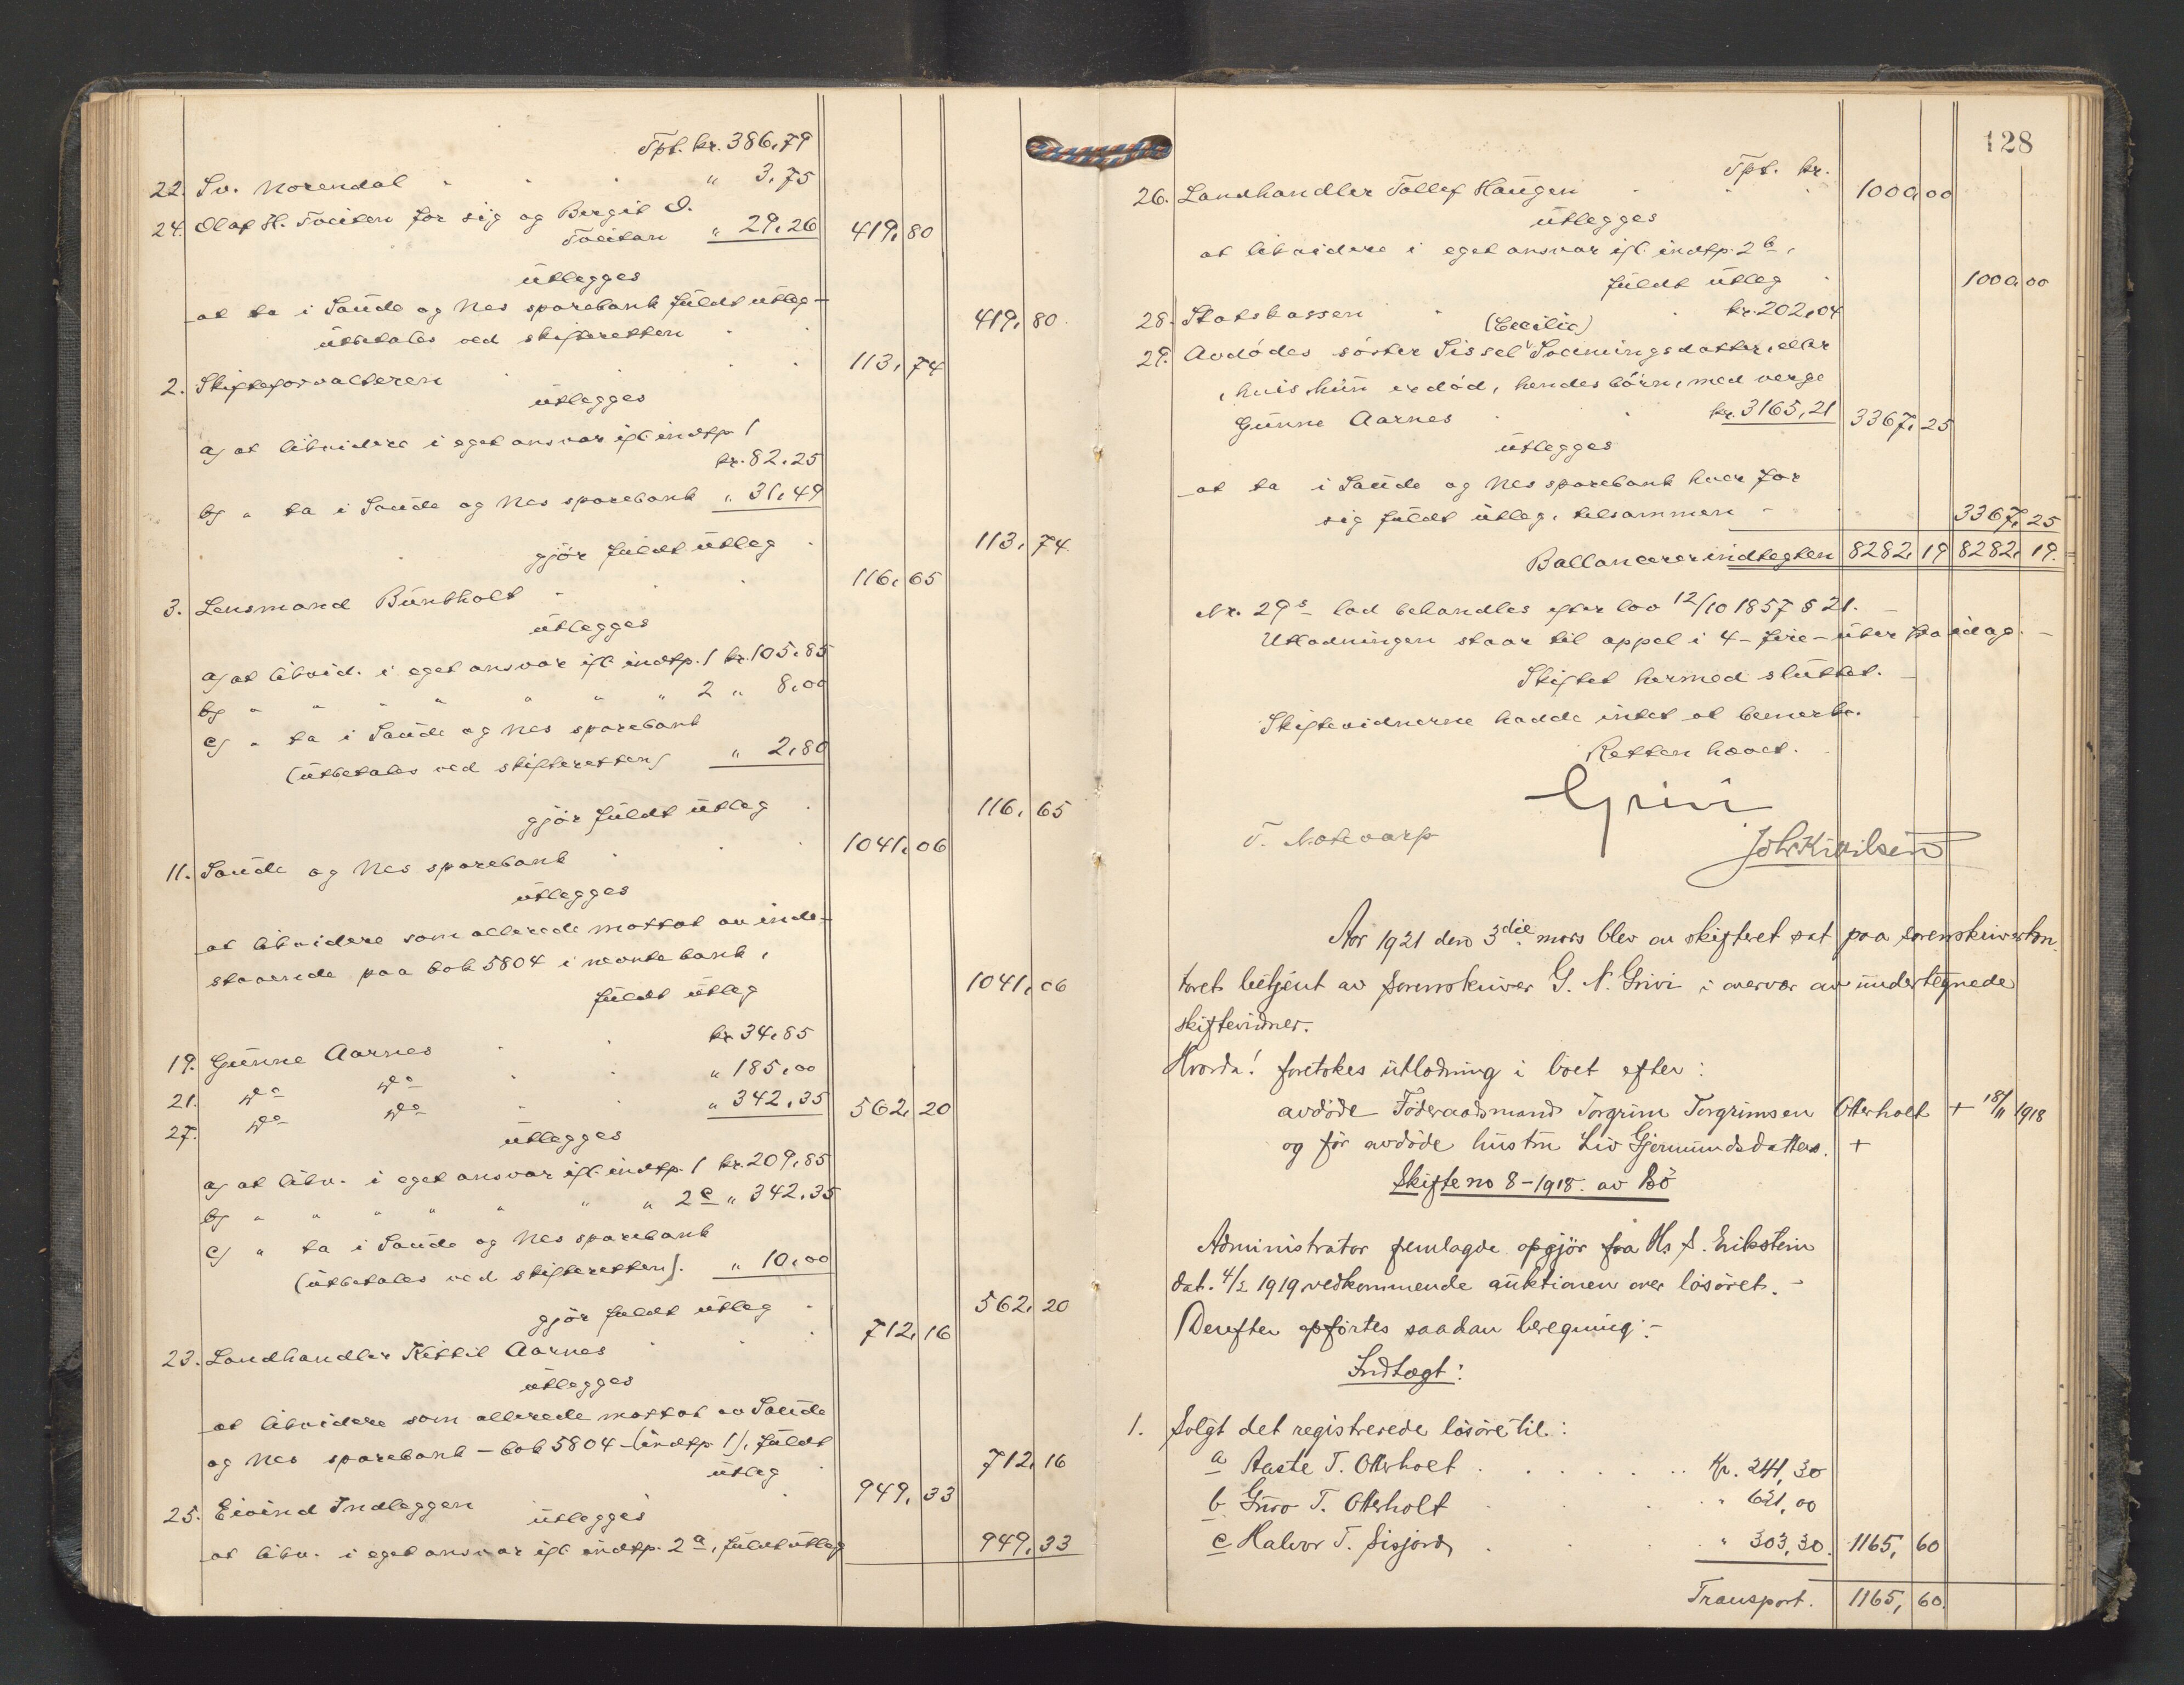 Tpt. kr. 386,79
22. Sv. Norendal " 3,75
24. Olaf H. Tveiten for sig og Bergit O.
Tveitan " 29,26 419,80
utlegges
at ta i Saude og Nes sparebank fuldt utleg –
utbetales ved skifteretten 419,80
2. Skifteforvalteren 113,74
utlegges
a) at likvidere i eget ansvar ifl. indtp. 1
kr. 82,25
b) " ta i Saude og Nes sparebank " 31,49
gjör fuldt utleg 113,74
3. Lensmand Buntholt 116,65
utlegges
a) at likvid. i eget ansvar ifl. indtp. 1 kr. 105,85
b) " " " " " " " 2 " 8,00
c) " ta i Saude og Nes sparebank
(utbetales ved skifteretten) " 2,80
gjör fuldt utleg 116,65
11. Saude og Nes sparebank 1041,06
utlegges
at likvidere som allerede mottat av inde-
staaende paa bok 5804 i nevnte bank,
fuldt utleg 1041,06
19. Gunne Aarnes kr 34,85
21. do do " 185,00
27. do do " 342,35 562,20
utlegges
a) at likv. i eget ansvar ifl. indtp. 1 kr. 209,85
b) " " " " " " " 2c " 342,35
c) " ta i Saude og Nes sparebank
(utbetales ved skifteretten). " 10,00
gjör fuldt utleg 562,20
23. Landhandler Kittil Aarnes 712,16
utlegges
at likvidere som allerede mottat av Saude
og Nes sparebank – bok 5804 – (indtp 1), fuldt
utleg 712,16
25. Eivind Indleggen 949,33
utlegges
at likv. i eget ansvar ifl. indtp. 2a, fuldt utleg 949,33
128
Tpt. kr.
26. Landhandler Tollef Haugen 1000,00
utlegges
at likvidere i eget ansvar ifl. indtp. 2b,
fuldt utleg 1000,00
28. Statskassen kr. 202,04
(Cecilie)
29. Avdödes söster Sissel Sveinungsdatter, eller
, hvis hun er död, hendes börn, med verge
Gunne Aarnes kr. 3165,21 3367,25
utlegges
at ta i Saude og Nes sparebank hver for
sig fuldt utleg, tilsammen 3367,25
Ballancerer indtegten 8282,19 8282,19.
Nr. 29s lod behandles efter lov 12/10 1857 § 21. –
Utlodningen staar til appel i 4 – fire – uker fra idag. –
Skiftet hermed sluttet. –
Skiftevidnerne hadde intet at bemerke.
Retten hævet.
Grivi
T. Notevarp
Joh Kittilsen
Aar 1921 den 3die mars blev en skifteret sat paa sorenskriverkon-
toret betjent av sorenskriver G. N. Grivi i overvær av undertegnede
skiftevidner.
Hvorda! foretokes utlodning i boet efter:
avdöde Föderaadsmand Torgrim Torgrimsen Otterholt + 18/11 1918
og för avdöde hustru Liv Gjermundsdatter. +
Skifte no 8 – 1918. av Bö
Administrator fremlagde opgjör fra Hr S. Erikstein
dat. 4/2 1919 vedkommende auktionen over lösöret. –
Derefter opförtes saadan beregning: –
Indtægt:
1. Solgt det registrerede lösöre til:
a Aaste T. Otterholt Kr. 241,30
b Guro T. Otterholt " 621,00
c Halvor T. Sisjord " 303,30. 1165,60
Transport. 1165,60.